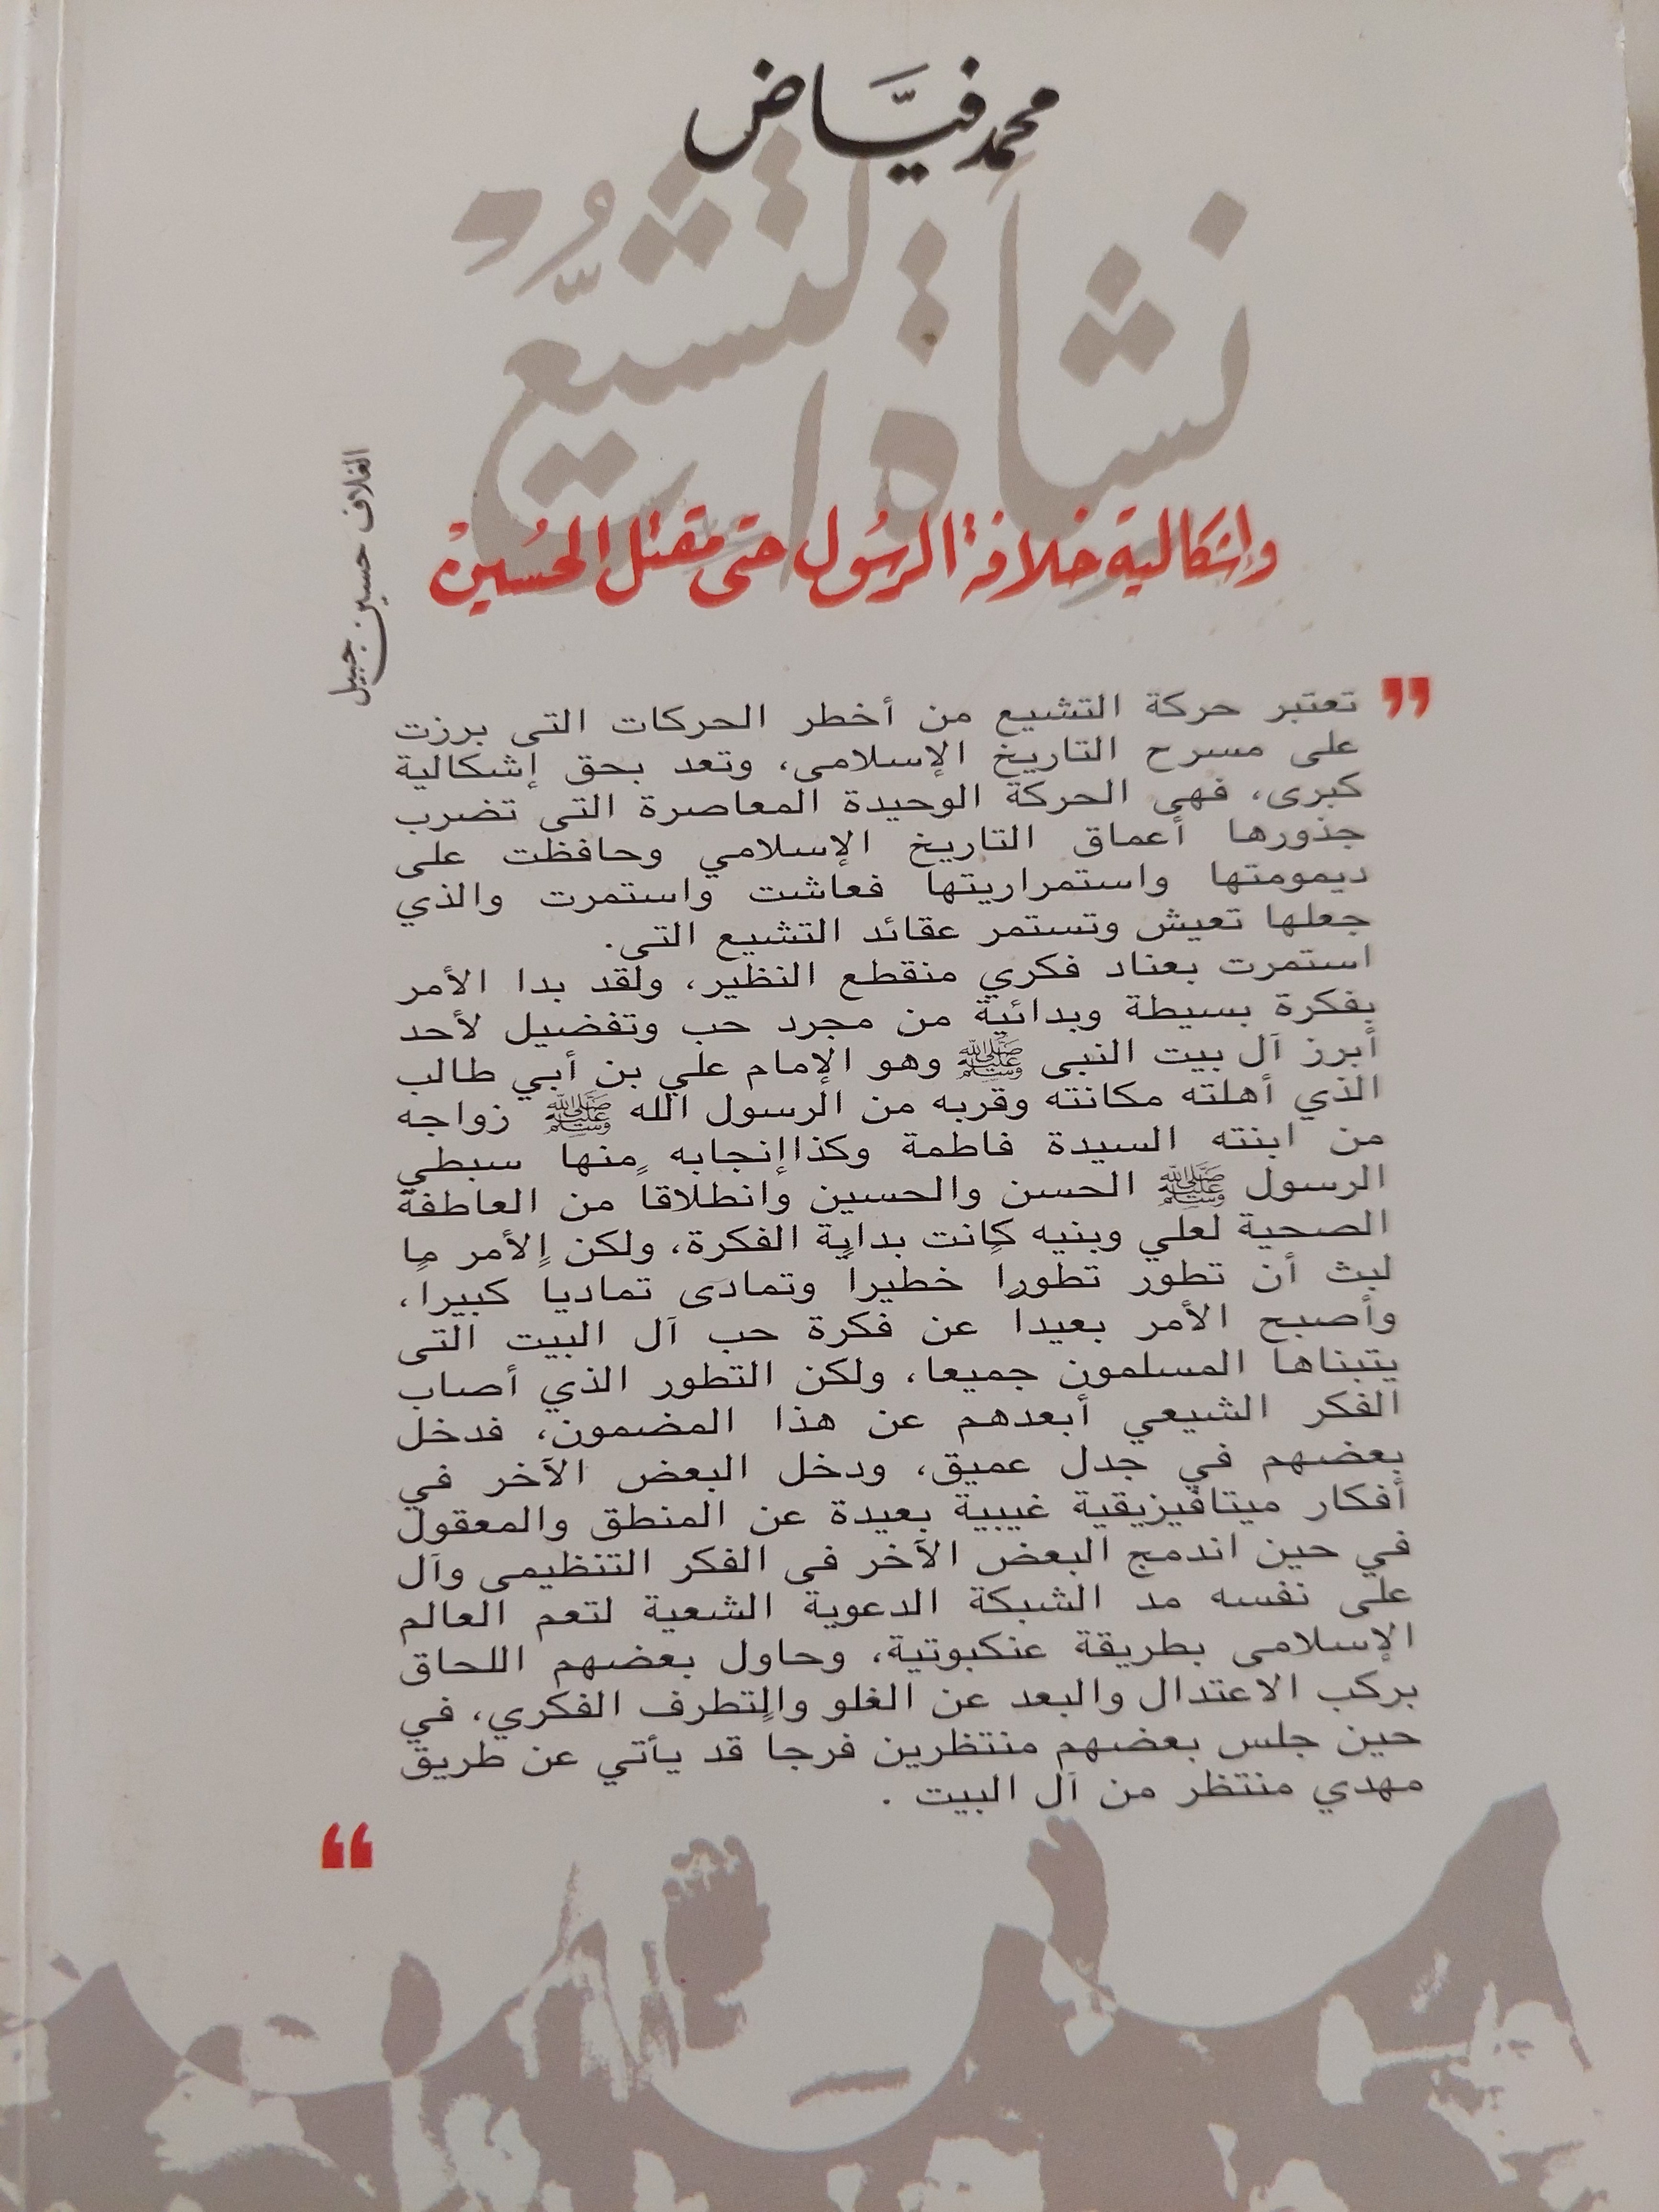 محمد فيَّاض
نشأة التشيُّع
وإشكالية خلافة الرسُول حتى مقتل الحُسين
الغلاف حسين جبيل
”
تعتبر حركة التشيع من أخطر الحركات التى برزت
على مسرح التاريخ الإسلامى، وتعد بحق إشكالية
كبرى، فهى الحركة الوحيدة المعاصرة التى تضرب
جذورها أعماق التاريخ الإسلامي وحافظت على
ديمومتها واستمراريتها فعاشت واستمرت والذي
جعلها تعيش وتستمر عقائد التشيع التى.
استمرت بعناد فكري منقطع النظير، ولقد بدا الأمر
بفكرة بسيطة وبدائية من مجرد حب وتفضيل لأحد
أبرز آل بيت النبى ﷺ وهو الإمام علي بن أبي طالب
الذي أهلته مكانته وقربه من الرسول الله ﷺ زواجه
من ابنته السيدة فاطمة وكذاإنجابه منها سبطي
الرسول ﷺ الحسن والحسين وانطلاقاً من العاطفة
الصحية لعلي وبنيه كانت بداية الفكرة، ولكن الأمر ما
لبث أن تطور تطوراً خطيراً وتمادى تماديا كبيراً،
وأصبح الأمر بعيداً عن فكرة حب آل البيت التى
يتبناها المسلمون جميعا، ولكن التطور الذي أصاب
الفكر الشيعي أبعدهم عن هذا المضمون، فدخل
بعضهم في جدل عميق، ودخل البعض الآخر في
أفكار ميتافيزيقية غيبية بعيدة عن المنطق والمعقول
في حين اندمج البعض الآخر فى الفكر التنظيمى وآل
على نفسه مد الشبكة الدعوية الشعية لتعم العالم
الإسلامى بطريقة عنكبوتية، وحاول بعضهم اللحاق
بركب الاعتدال والبعد عن الغلو والتطرف الفكري، في
حين جلس بعضهم منتظرين فرجاً قد يأتي عن طريق
مهدي منتظر من آل البيت .
“